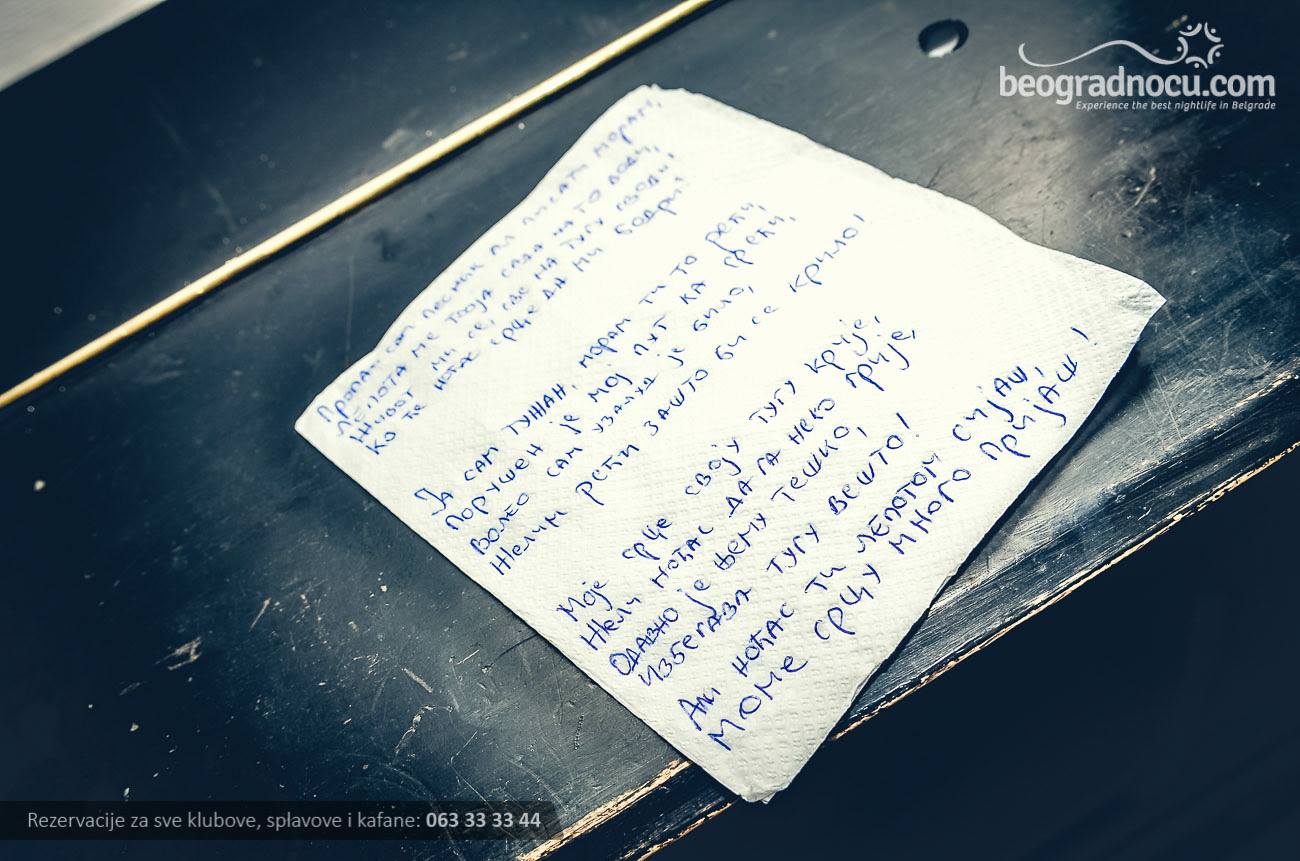 beogradnocu.com
Experience the best nightlife in Belgrade
Пропао сам песник али писати морам,
Лепота ме твоја сада на то води,
Живот ми се, све на тугу своди,
Ко те ноћас срце да ми бодри!
Ја сам тужан, морам ти то рећи,
Порушен је мој пут ка срећи,
Волео сам узалуд је било,
Желим рећи зашто би се крило!
Моје срце своју тугу крије,
Жели ноћас да га неко грије,
Одавно је њему тешко,
Избегава тугу вешто!
Али ноћас ти лепотом сијаш,
Моме срцу много пријаш!
Rezervacije za sve klubove, splavove i kafane: 063 33 33 44